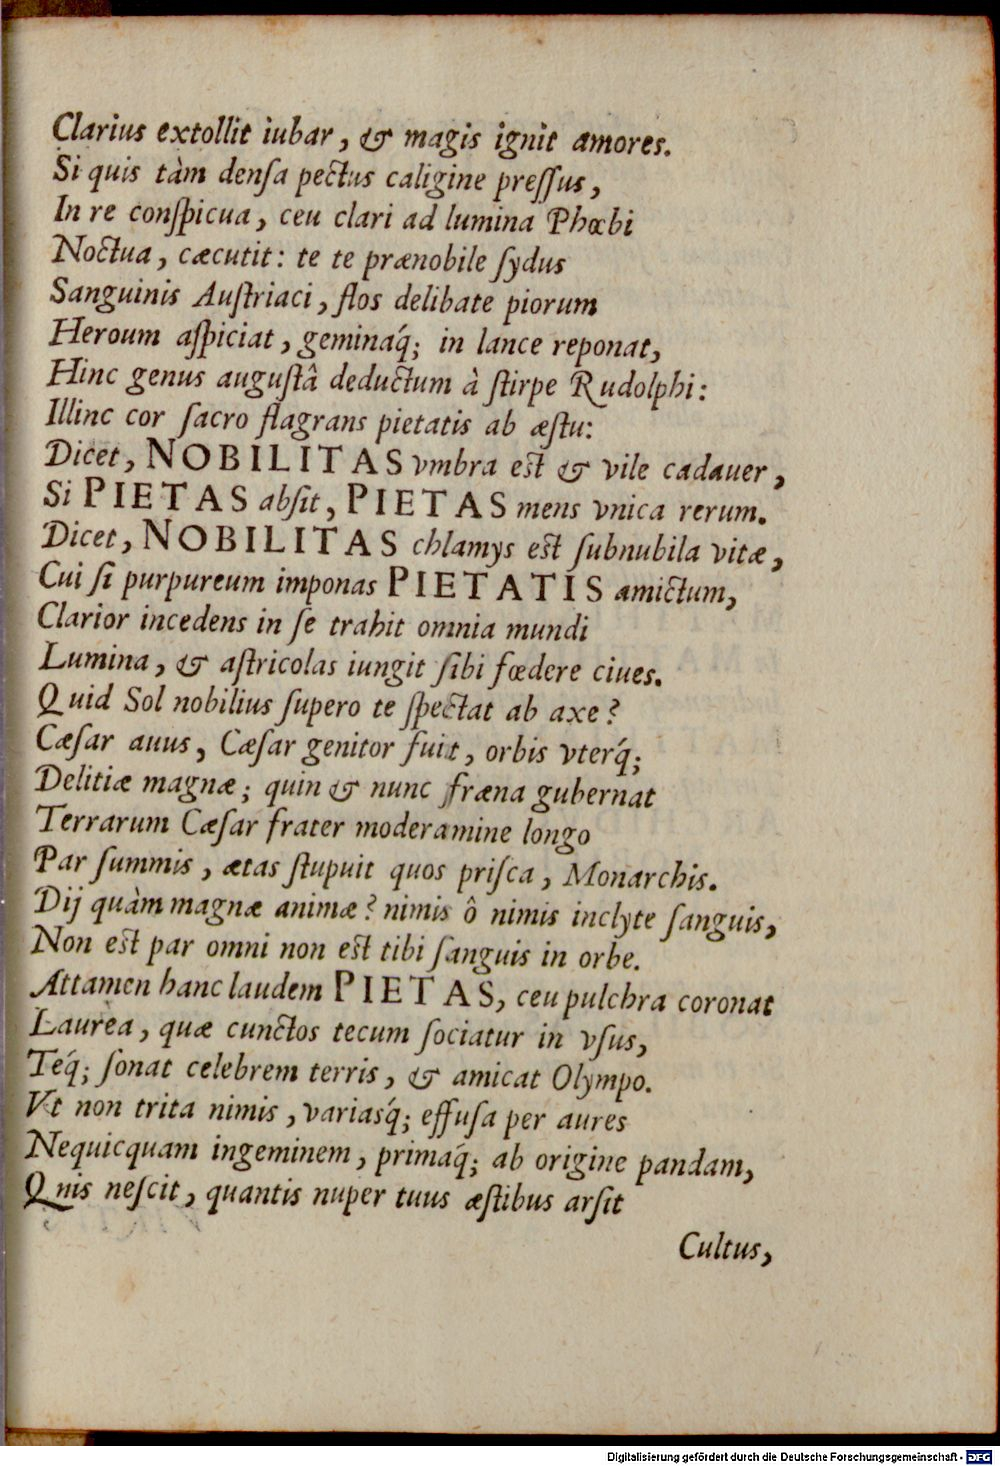 Clarius extollit iubar, & magis ignit amores.
Si quis tàm denſa pectus caligine preſſus,
In re conſpicua, ceu clari ad lumina Phœbi
Noctua, cæcutit: te te prænobile ſydus
Sanguinis Auſtriaci, flos delibate piorum
Heroum aſpiciat, geminaq́; in lance reponat,
Hinc genus auguſtâ deductum à ſtirpe Rudolphi:
Illinc cor ſacro flagrans pietatis ab æſtu:
Dicet, NOBILITAS vmbra eſt & vile cadauer,
Si PIETAS abſit, PIETAS mens vnica rerum.
Dicet, NOBILITAS chlamys eſt ſubnubila vitæ,
Cui ſi purpureum imponas PIETATIS amictum,
Clarior incedens in ſe trahit omnia mundi
Lumina, & aſtricolas iungit ſibi fœdere ciues.
Quid Sol nobilius ſupero te ſpectat ab axe?
Cæſar auus, Cæſar genitor fuit, orbis vterq́;
Delitiæ magnæ; quin & nunc fræna gubernat
Terrarum Cæſar frater moderamine longo
Par ſummis, ætas ſtupuit quos priſca, Monarchis.
Dij quàm magnæ animæ? nimis ô nimis inclyte ſanguis,
Non eſt par omni non eſt tibi ſanguis in orbe.
Attamen hanc laudem PIETAS, ceu pulchra coronat
Laurea, quæ cunctos tecum ſociatur in vſus,
Teq́; ſonat celebrem terris, & amicat Olympo.
Vt non trita nimis, variasq́; effuſa per aures
Nequicquam ingeminem, primaq́; ab origine pandam,
Quis neſcit, quantis nuper tuus æſtibus arſit
Cultus,
Digitalisierung gefördert durch die Deutsche Forschungsgemeinschaft - DFG